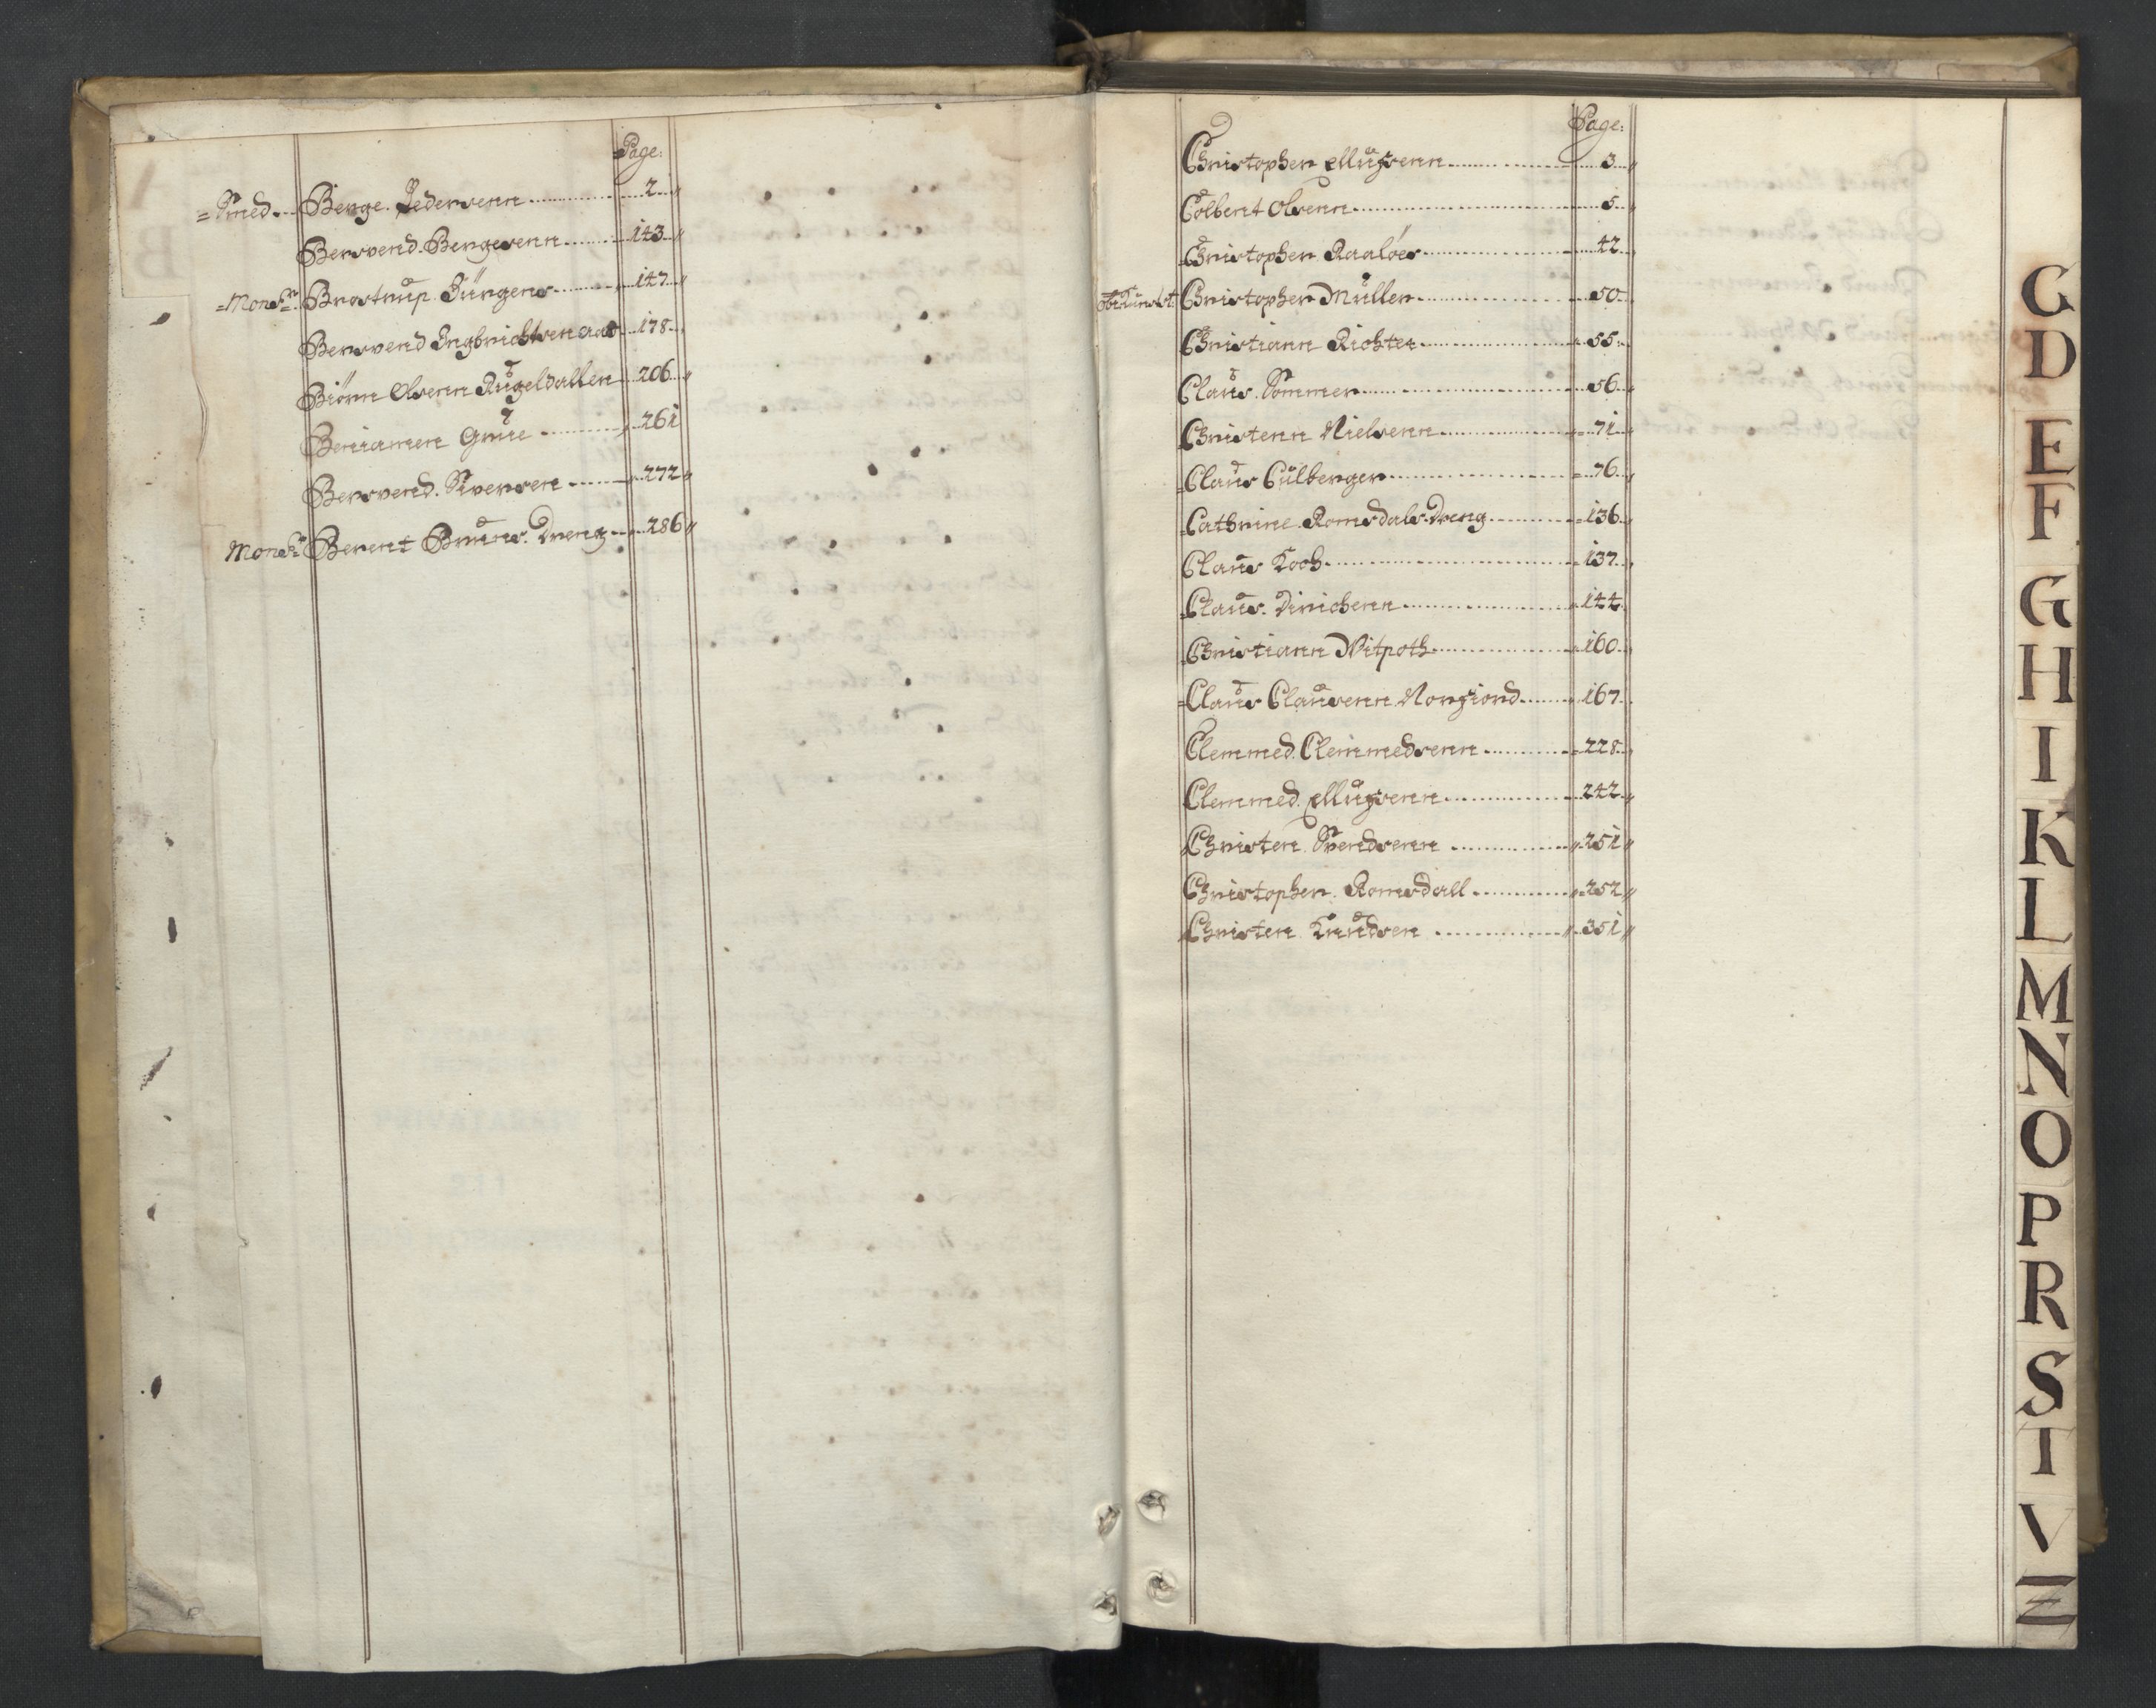 Page:
Smed. Berge Pedersenn 2
Bersvend Bergersenn 143
Monsr. Brostrup Jürgens 147
Bersvend Ingbrichtsen aas 178
Biörn Olsenn Rugeldallen 206
Beniamen Grüe 261
Bersvend Siversen 272
Monsr. Berent Bruns Dreng 286
Page:
Christopher Ellufsenn 3
Colbert Olsenn 5
Christopher Raaløes 42
Christopher Müller 50
Christiann Richter 55
Claus Sommer 56
Christenn Nielsenn 71
Claus Culberger 76
Cathrine Romsdals Dreng 136
Claus Koch 137
Claus Dirichenn 144
Christiann Witpoth 160
Claus Clausenn Norfiord 167
Clemmed Clemmedsenn 228
Clemmed Ellufsenn 242
Christen Svendsenn 251
Christopher Romsdall 252
Christen Knudsen 351
C
D
E
F
G
H
I
K
L
M
N
O
P
R
S
T
V
Z